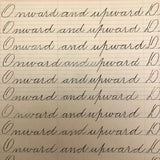 Onward and upward D
Onward and upward D
Onward and upward D
Onward and upward D
Onward and upward D
Onward and upward D
Onward and upward D
Onward and upward D